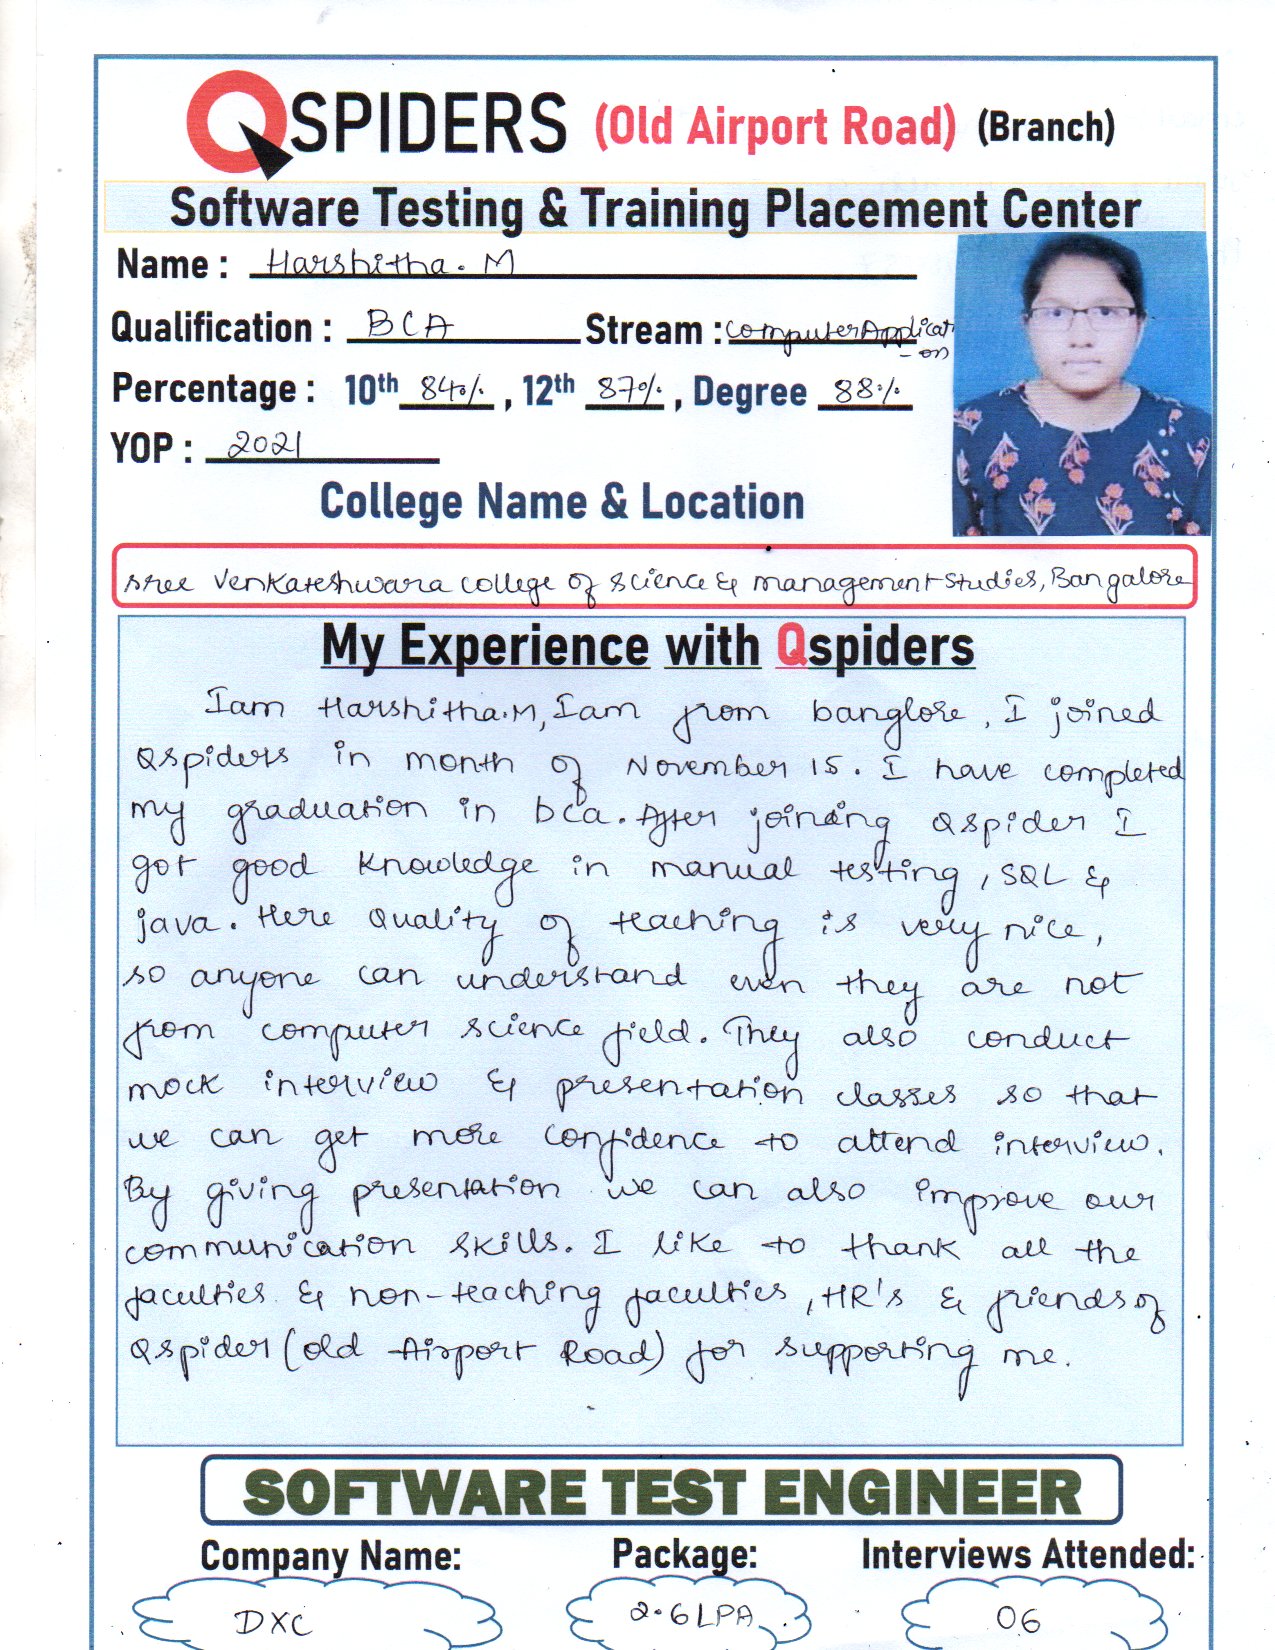 QSPIDERS (Old Airport Road) (Branch)
Software Testing & Training Placement Center
Name : Harshitha. M
Qualification : BCA Stream : Computer Applicat
-on
Percentage : 10th 84% , 12th 87% , Degree 88%
YOP : 2021
College Name & Location
Sree Venkateshwara college of science & management studies, Bangalore
My Experience with Qspiders
Iam Harshitha.M, Iam from banglore, I joined
Qspiders in month of November 15. I have completed
my graduation in bca. After joining Qspider I
got good knowledge in manual testing, SQL &
java. Here Quality of teaching is very nice,
so anyone can understand even they are not
from computer science field. They also conduct
mock interview & presentation classes so that
we can get more confidence to attend interview.
By giving presentation we can also improve our
communication skills. I like to thank all the
faculties & non-teaching faculties, HR's & friends of
Qspider (old Airport Road) for supporting me.
SOFTWARE TEST ENGINEER
Company Name: Package: Interviews Attended:
DXC 2.6 LPA. 06